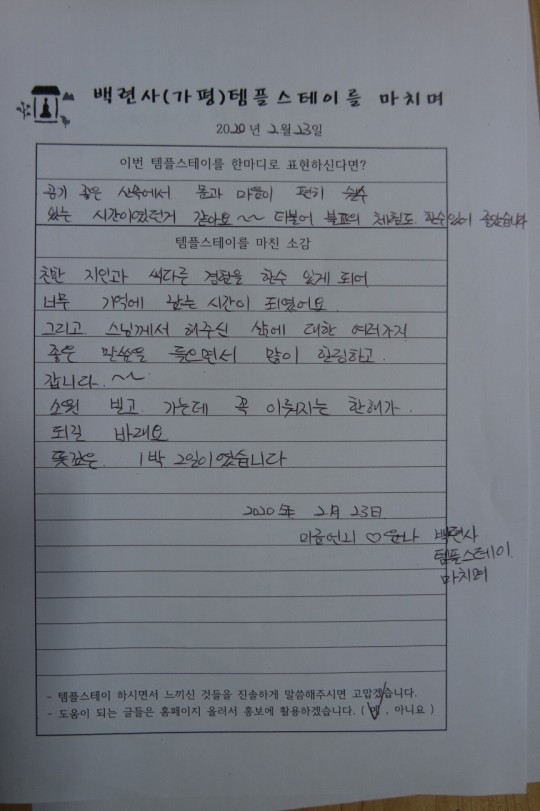 백련사(가평)템플스테이를 마치며
2020년 2월 23일
이번 템플스테이를 한마디로 표현하신다면?
공기 좋은 산속에서 몸과 마음이 편히 쉴수
있는 시간이였던거 같아요~~ 더불어 불교의 체험도 할수있어 좋았습니다
템플스테이를 마친 소감
친한 지인과 색다른 경험을 할수 있게 되어
너무 기억에 남는 시간이 되였어요
그리고 스님께서 해주신 삶에 대한 여러가지
좋은 말씀을 들으면서 많이 힐링하고
갑니다. ~~
소원 빌고 가는데 꼭 이뤄지는 한해가
되길 바래요
뜻깊은 1박 2일이였습니다
2020年 2月 23日
♡ 백련사
템플스테이
마치며
- 템플스테이 하시면서 느끼신 것들을 진솔하게 말씀해주시면 고맙겠습니다.
- 도움이 되는 글들은 홈페이지 올려서 홍보에 활용하겠습니다. ( 예 , 아니요 )